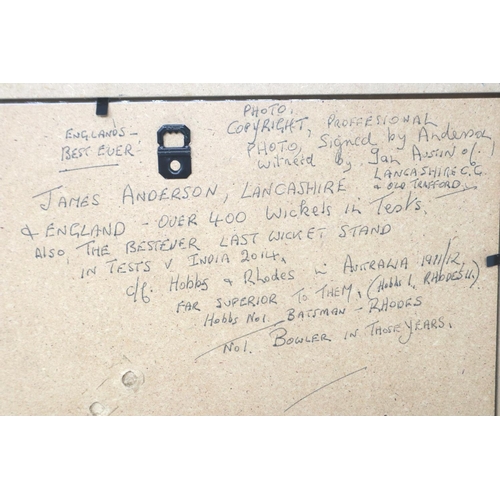 ENGLAND'S -
BEST EVER
PHOTO,
COPYRIGHT, PROFFESIONAL
PHOTO, Signed by Anderson
witnesd by, Ian Austin of !
LANCASHIRE C.C.
& OLD TRAFFORD.
JAMES ANDERSON, LANCASHIRE
& ENGLAND - OVER 400 Wickets in Tests.
ALSO, THE BESTEVER LAST WICKET STAND
IN TESTS V INDIA 2014.
c/f. Hobbs & Rhodes in AUSTRALIA 1911/12,
FAR SUPERIOR TO THEM, (Hobbs 1, RHODES 11.)
Hobbs No1. BATSMAN - RHODES
No1. BOWLER IN THOSE YEARS.